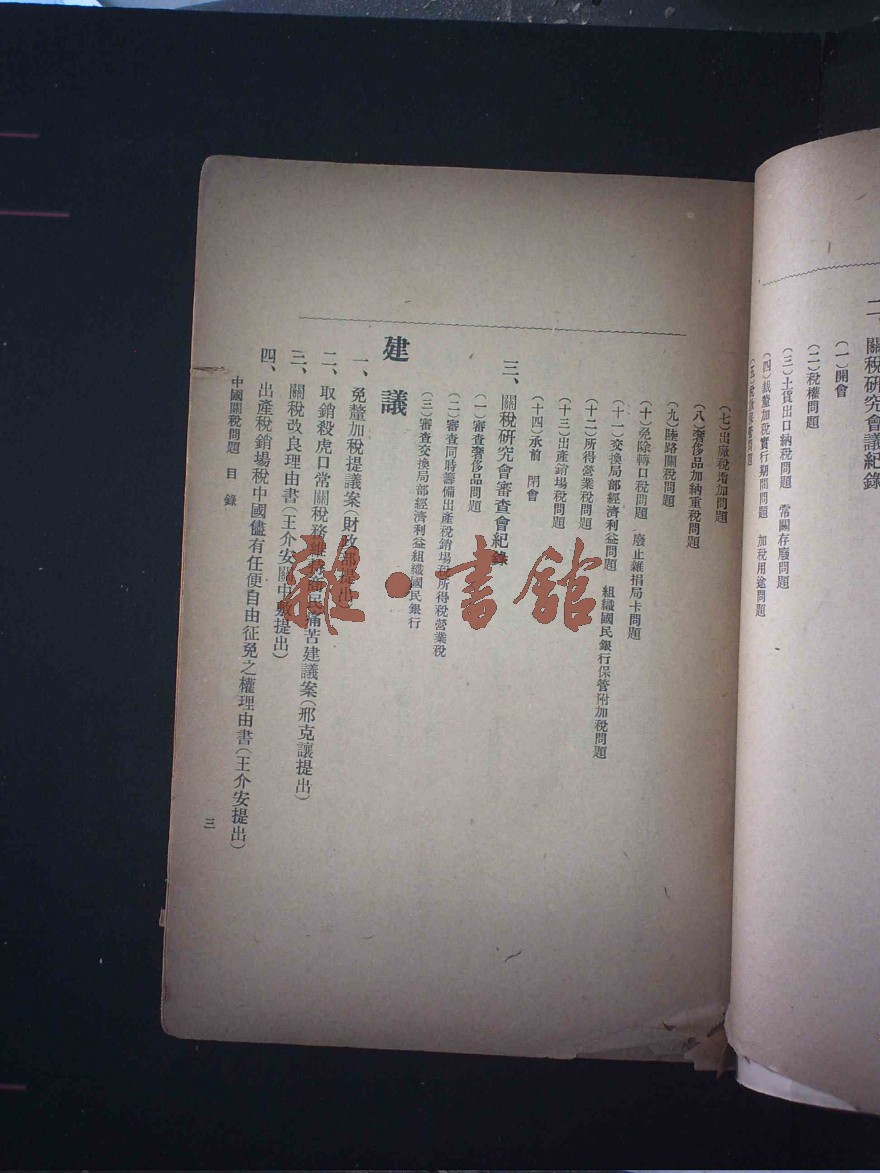 二、關稅研究會議紀錄
(一)開會
(二)稅權問題
(三)土貨出口納稅問題 常關存廢問題
(四)裁釐加稅實行期間問題 加稅用途問題
(七)出廠稅增加問題
(八)奢侈品加納重稅問題
(九)陸路關稅問題
(十)免除轉口稅問題 廢止雜捐局卡問題
(十一)交換局部經濟利益問題 組織國民銀行保管附加稅問題
(十二)所得營業稅問題
(十三)出產銷場稅問題
(十四)承前 閉會
三、關稅研究會審查會紀錄
(一)審查奢侈品問題
(二)審查同時籌備出產稅銷場稅所得稅營業稅
(三)審查交換局部經濟利益組織國民銀行
建議
一、免釐加稅提議案(財政部提出)
二、取銷殺虎口常關稅務維持商民痛苦建議案(邢克讓提出)
三、關稅改良理由書(王介安關中敷提出)
四、出產稅銷場稅中國儘有任便自由征免之權理由書(王介安提出)
中國關稅問題 目錄
三
雜·書館